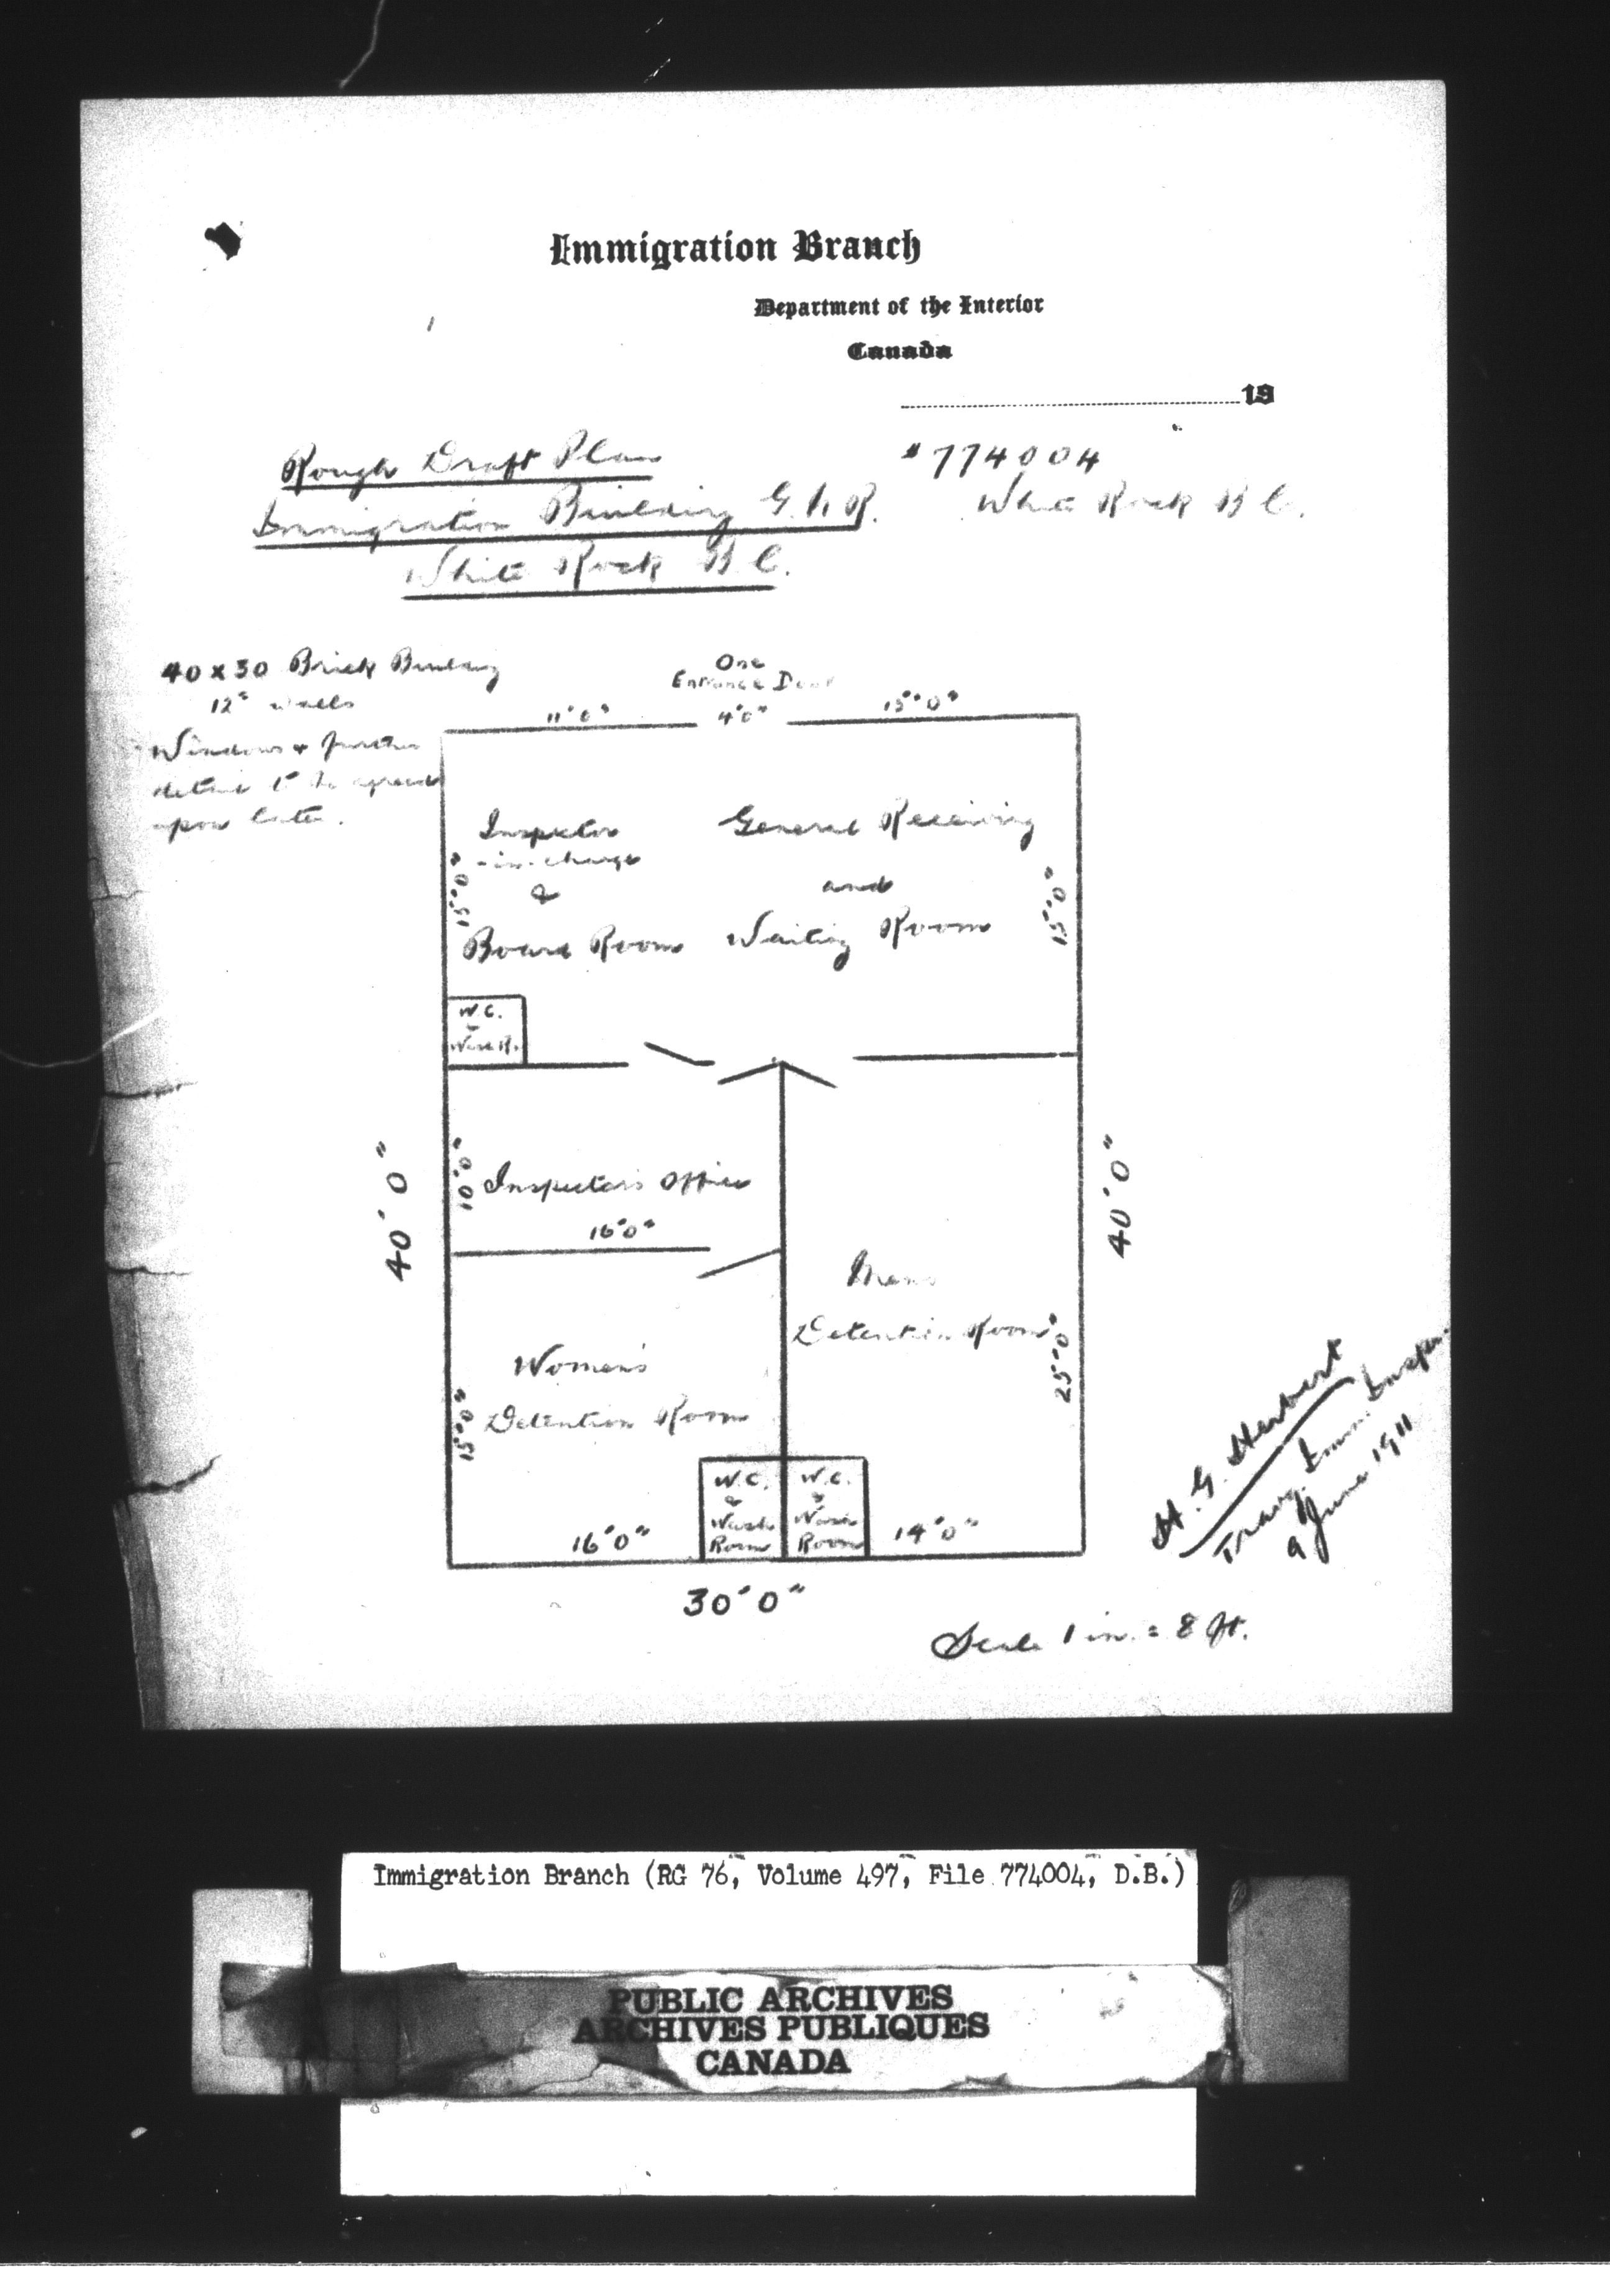 Immigration Branch
Department of the Interior
Canada
19
Rough Draft Plan
#774004
Immigration Building G.N.R.
White Rock B.C.
White Rock B.C.
40 x 30 Brick Building
12" walls
Windows & further
detail to be agreed
upon later.
One
Entrance Door
11'0"
4'0"
15'0"
Inspector
-in-charge
&
Board Room
General Receiving
and
Waiting Room
15'0"
15'0"
W.C.
&
Wash R.
10'0"
Inspector's Office
16'0"
40'0"
40'0"
Mens
Detention Room
25'0"
Women's
Detention Room
15'0"
W.C.
&
Wash
Room
W.C.
&
Wash
Room
16'0"
14'0"
30'0"
H. G. Herbert
Trav. Imm. Inspr.
9 June 1911
Scale 1 in. = 8 ft.
Immigration Branch (RG 76, Volume 497, File 774004, D.B.)
PUBLIC ARCHIVES
ARCHIVES PUBLIQUES
CANADA